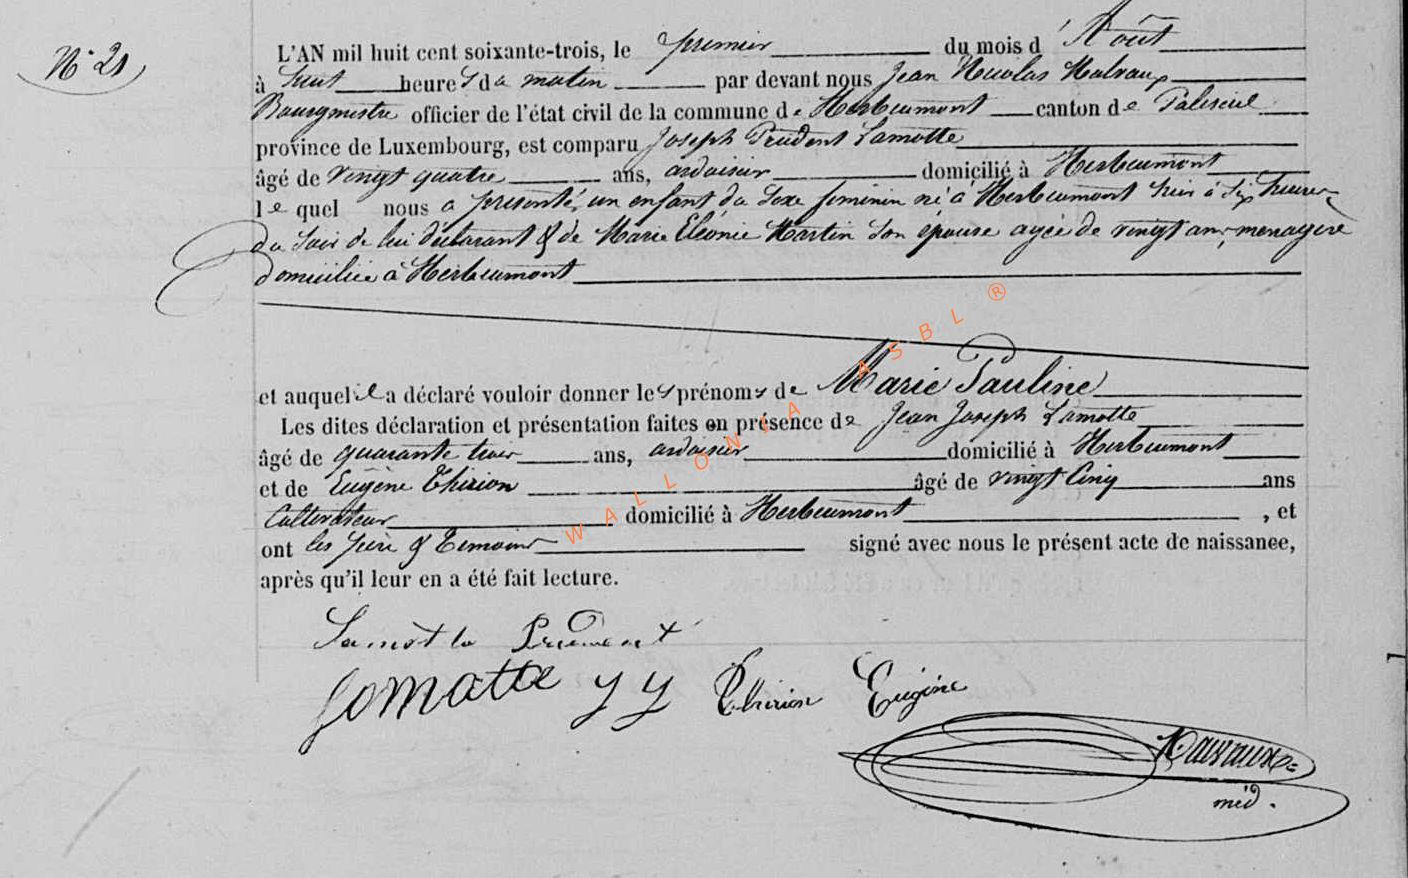 N° 21
L'AN mil huit cent soixante-trois, le premier du mois d' Août
à huit heures du matin par devant nous Jean Nicolas Malvaux
Bourgmestre officier de l'état civil de la commune de Herbeumont canton de Paliseul
province de Luxembourg, est comparu Joseph Prudent Lamotte
âgé de vingt quatre ans, ardoisier domicilié à Herbeumont
le quel nous a présenté, un enfant du sexe féminin né à Herbeumont hier à six heures
du soir de lui déclarant & de Marie Eléonie Martin son épouse agée de vingt ans, menagère
domiciliée à Herbeumont
et auquel il a déclaré vouloir donner les prénoms de Marie Pauline
Les dites déclaration et présentation faites en présence de Jean Joseph Lamotte
âgé de quarante trois ans, ardoisier domicilié à Herbeumont
et de Eugène Thirion âgé de vingt cinq ans
Cultivateur domicilié à Herbeumont , et
ont les père & temoins signé avec nous le présent acte de naissance,
après qu'il leur en a été fait lecture.
Lamotte Prudent
Lamotte J J Thirion Eugène
méd.
WALLONIA ASBL ®